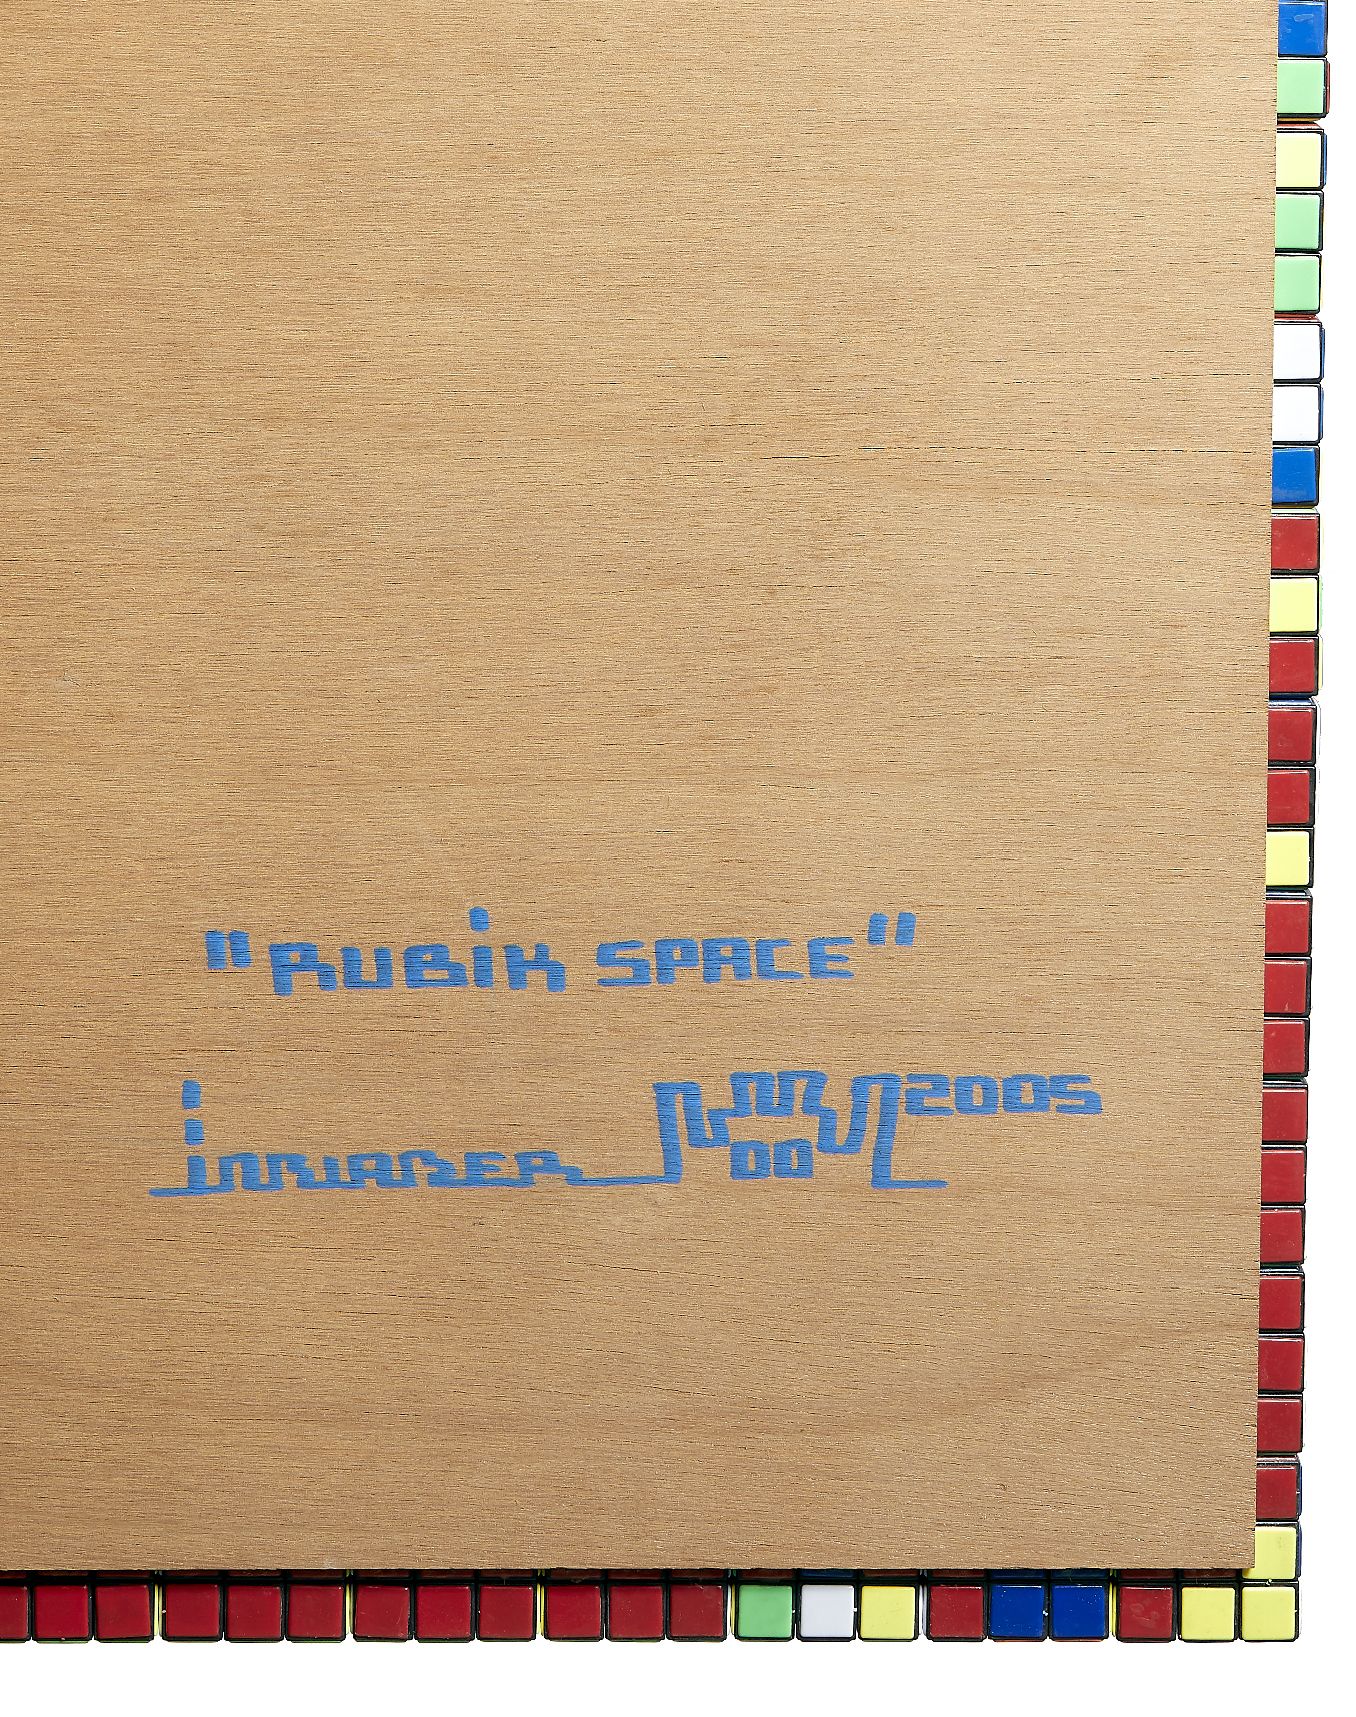 "RUBiK SPACE"
iNVADER 2005